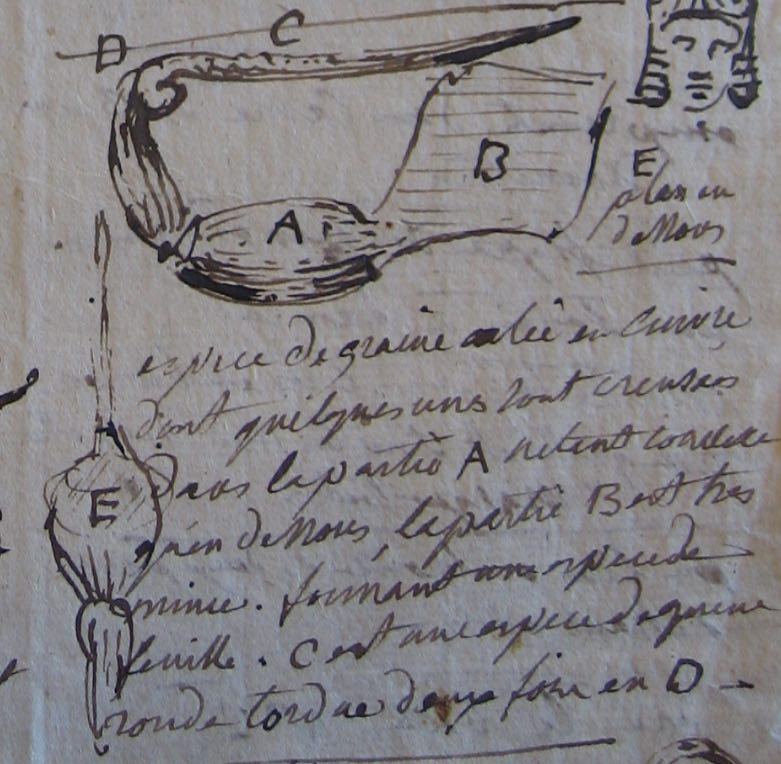 D C
B
A
E
plan en
dessous
espece de graine ailée en cuivre
dont quelques unes sont creusées
dans la partie A n'etant
qu'en dessous, la partie B est tres
mince. formant une espece de
feuille. C est une espece de graine
ronde tordue deux fois en D -
E